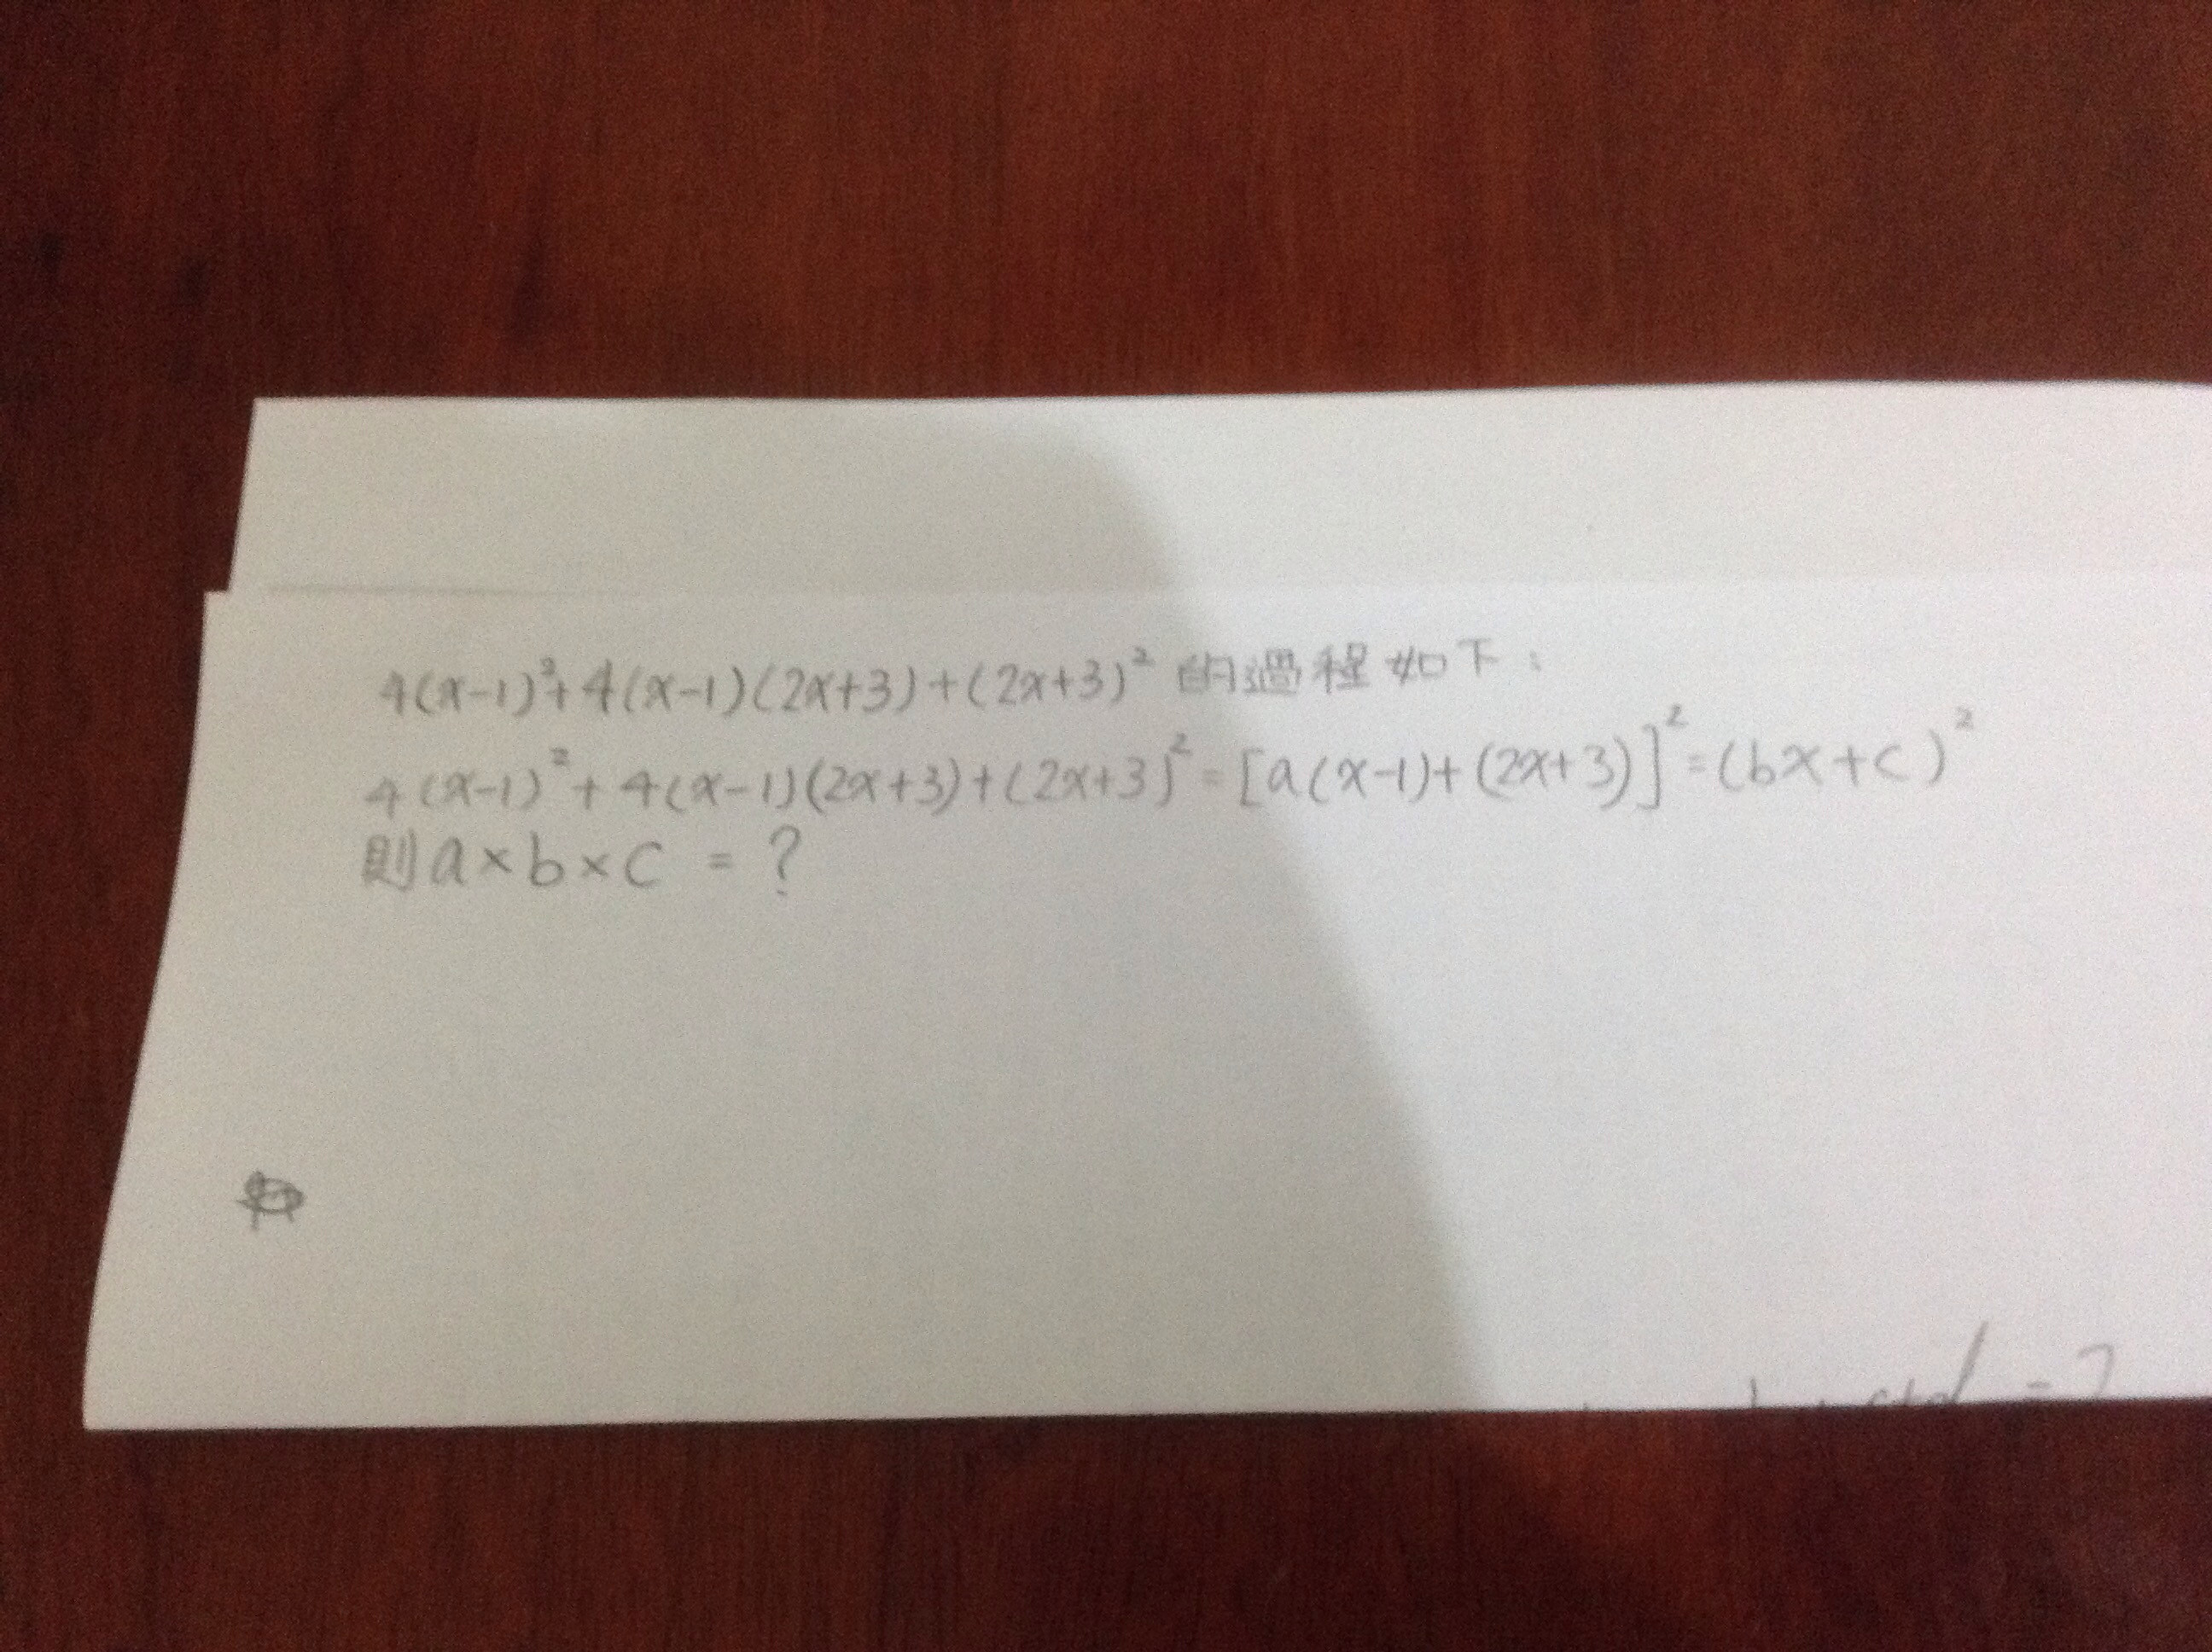 4(x-1)²+4(x-1)(2x+3)+(2x+3)² 的過程如下：
4(x-1)²+4(x-1)(2x+3)+(2x+3)²=[a(x-1)+(2x+3)]²=(bx+c)²
則a×b×c = ?